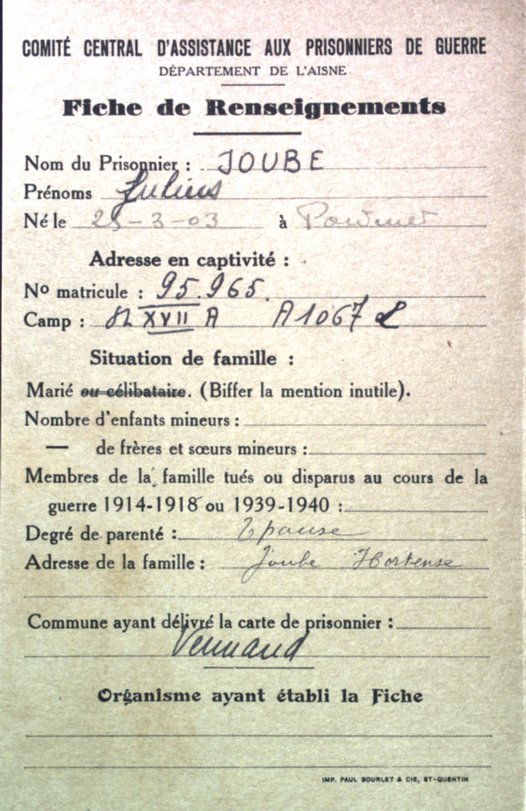 COMITÉ CENTRAL D'ASSISTANCE AUX PRISONNIERS DE GUERRE
DÉPARTEMENT DE L'AISNE
Fiche de Renseignements
Nom du Prisonnier : JOUBE
Prénoms Juliens
Né le 25-3-03 à
Adresse en captivité :
No matricule : 95.965.
Camp : XVII A A1067
Situation de famille :
Marié ou célibataire. (Biffer la mention inutile).
Nombre d'enfants mineurs :
— de frères et sœurs mineurs :
Membres de la famille tués ou disparus au cours de la
guerre 1914-1918 ou 1939-1940 :
Degré de parenté : Epouse
Adresse de la famille : Joube Hortense
Commune ayant délivré la carte de prisonnier :
Vermand
Organisme ayant établi la Fiche
IMP. PAUL BOURLET & CIE, ST-QUENTIN